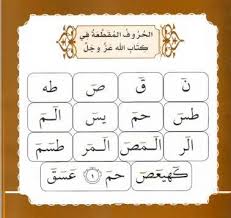 الحُرُوفُ المُقَطَّعَةُ فِي
كِتَابِ اللهِ عَزَّ وَجَلَّ
نٓ قٓ صٓ طه
طسٓ حمٓ يسٓ الٓمٓ
الٓر الٓمٓصٓ الٓمٓر طسٓمٓ
كٓهيعٓصٓ حمٓ ١ عٓسٓقٓ